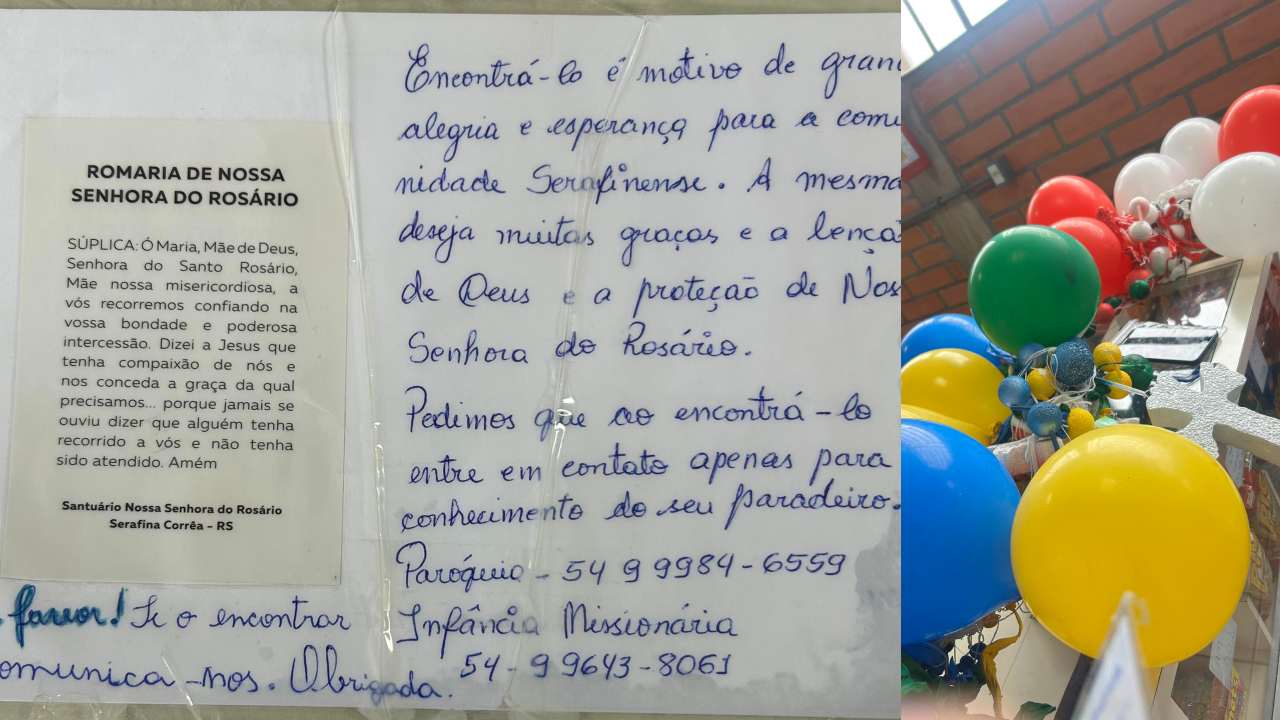 ROMARIA DE NOSSA
SENHORA DO ROSÁRIO
SÚPLICA: Ó Maria, Mãe de Deus,
Senhora do Santo Rosário,
Mãe nossa misericordiosa, a
vós recorremos confiando na
vossa bondade e poderosa
intercessão. Dizei a Jesus que
tenha compaixão de nós e
nos conceda a graça da qual
precisamos... porque jamais se
ouviu dizer que alguém tenha
recorrido a vós e não tenha
sido atendido. Amém
Santuário Nossa Senhora do Rosário
Serafina Corrêa - RS
favor! Se o encontrar
omunica-nos. Obrigada.
Encontrá-lo é motivo de gran
alegria e esperança para a comu
nidade Serafinense. A mesma
deseja muitas graças e a benção
de Deus e a proteção de Nos
Senhora do Rosário.
Pedimos que ao encontrá-lo
entre em contato apenas para
conhecimento do seu paradeiro.
Paróquia - 54 9 9984-6559
Infância Missionária
54-9 9643-8061